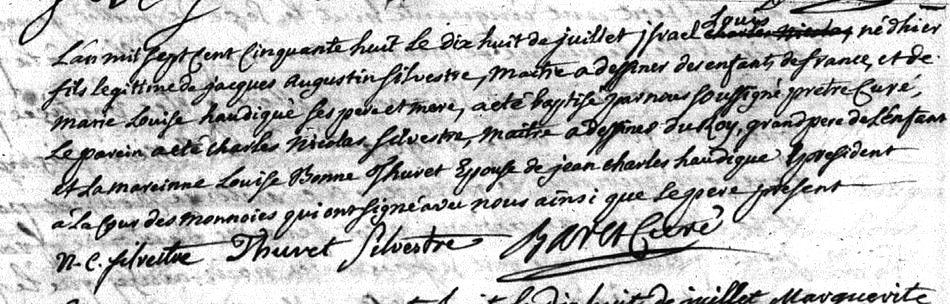 Louis
L'an mil sept cent cinquante huit le dix huit de juillet jsrael charles Nicolas né d'hier
fils legitime de jacques Augustin silvestre, maitre a dessiner des enfants de france, et de
marie Louise haudiqué ses pere et mere, a eté baptisé par nous soussigné prêtre Curé,
Le parein a eté Charles Nicolas Silvestre, maitre a dessiner du Roy, grand pere de L'enfant
et La mareinne Louise Bonne Thuret Epouse de jean charles haudique président
à La Cour des monnoies qui ont signé avec nous ainsi que Le pere present
N. C. Silvestre Thuret Silvestre Curé
huit le dix huit de juillet Marguerite